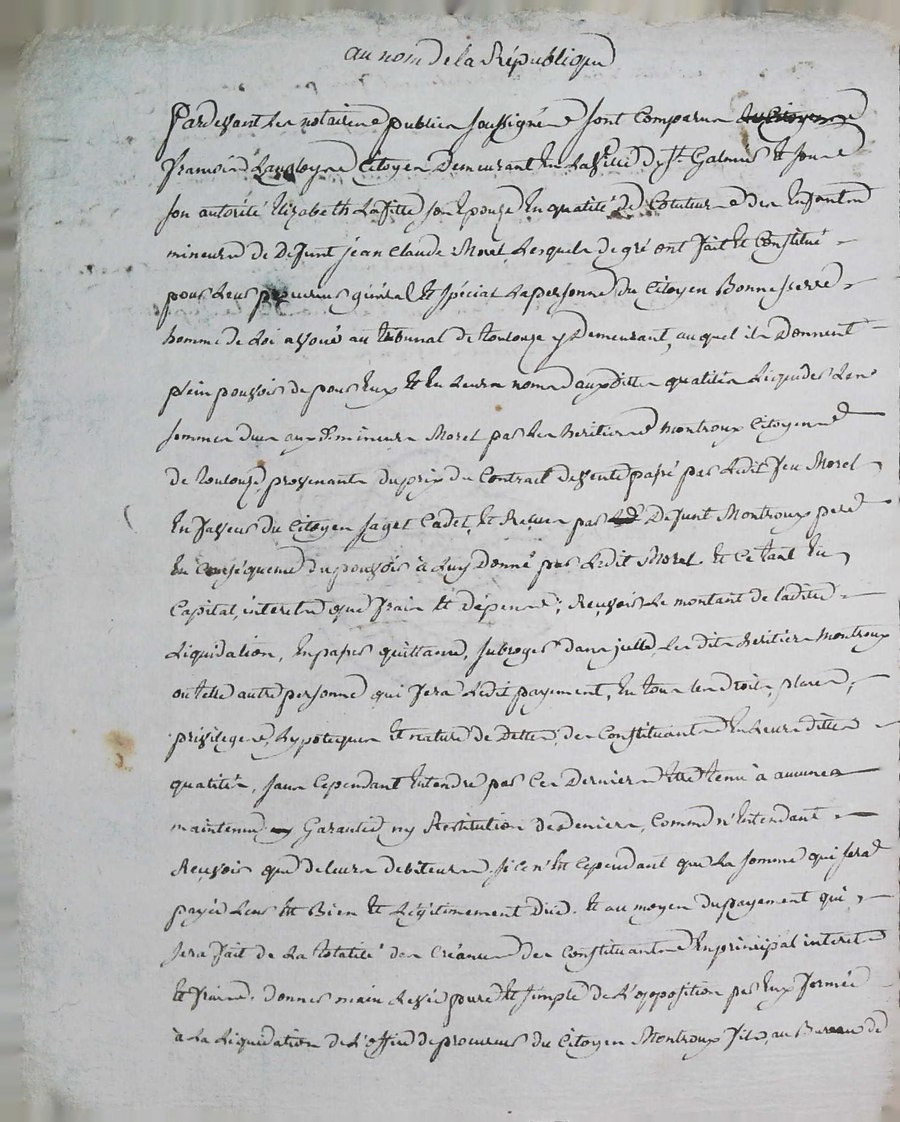 au nom de la République
Pardevant les notaires publics soussignés sont comparus
françois Citoyen Demeurant en la ville de St. Galmier et sous
son autorité Elizabeth Lafille son Epouze En qualité de Cotuture des Enfants
mineurs de Defunt jean Claude Morel Lesquels de gré ont fait et Constitué
pour Leur procureur général et spécial La personne du Citoyen Bonneserre
homme de Loi avoué au tribunal de toulouze y Demeurant, auquel ils Donnent
plein pouvoir de pour Eux et En Leurs noms auxdittes qualités Liquider Les
sommes dues aux d. mineurs Morel par Les heritiers Montroux Citoyens
de toulouze provenants du prix du Contract de vente passé par Ledit feu Morel
En faveur du Citoyen faget Cadet, et Reçues par Defunt Montroux pere
En Conséquence du pouvoir à Luy Donné par Ledit Morel. et Ce tant En
Capital, interets que frais et dépens; Reçevoir Le montant de laditte
Liquidation, En passer quittance, subroger dans jcelle, les dits heritiers Montroux
ou telle autre personne qui fera Ledit payement, En tous les droits, places,
privileges, hypoteques et nature de Dettes, des Constituants En Leurs dittes
qualités, sans Cependant Entendre par Ces Derniers Etre tenu à aucunes
maintenue Garantie, ny Restitution de Deniers, Comme n'Entendant
Reçevoir que de leurs debiteurs. si ce n'Est Cependant que La somme qui sera
payée Leur Est Bien Et Légitimement Düe. et au moyen du payement qui
sera fait de La totalité des Créances des Constituants En principal interets
et frais. donner main Levée pure et simple de L'opposition par Eux formée
à La Liquidation de L'office de procureur du Citoyen Montroux fils, au Bureau de